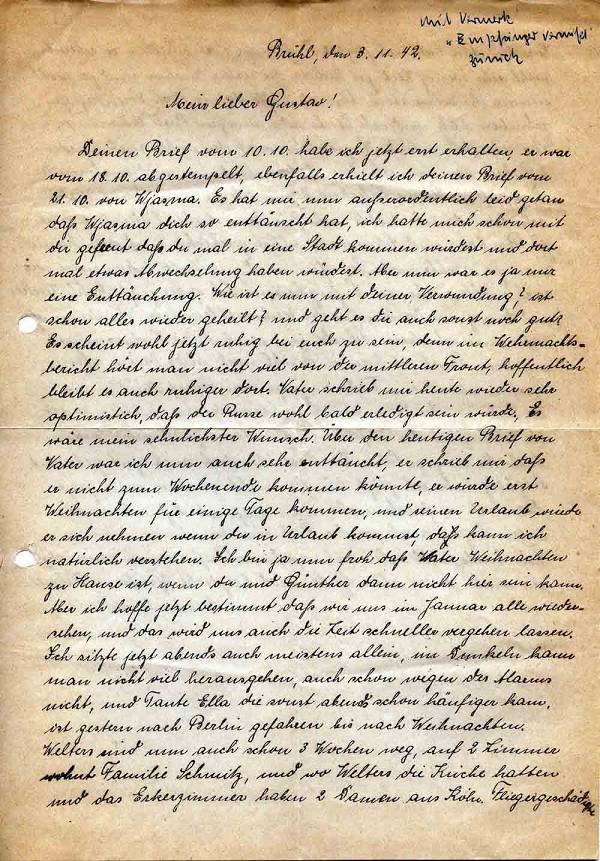 mit Vermerk
"Empfänger vermißt"
zurück
Brühl, den 3.11.42.
Mein lieber Gustav!
Deinen Brief vom 10.10. habe ich jetzt erst erhalten, er war
vom 18.10. abgestempelt, ebenfalls erhielt ich deinen Brief vom
21.10. von Wjasma. Es hat mir nun außerordentlich leid getan
daß Wjasma dich so enttäuscht hat, ich hatte mich schon mit
dir gefreut daß du mal in eine Stadt kommen würdest und dort
mal etwas Abwechselung haben würdest. Aber nun war es ja nur
eine Enttäuchung. Wie ist es nun mit deiner Verwundung? ist
schon alles wieder geheilt? und geht es dir auch sonst noch gut?
Es scheint wohl jetzt ruhig bei euch zu sein, denn im Wehrmachts-
bericht hört man nicht viel von der mittleren Front, hoffentlich
bleibt es auch ruhiger dort. Vater schrieb mir heute wieder sehr
optimistich, daß der Russe wohl bald erledigt sein würde, Es
wäre mein sehnlichster Wunsch. Über den heutigen Brief von
Vater war ich nun auch sehr enttäucht, er schrieb mir daß
er nicht zum Wochenende kommen könnte, er würde erst
Weihnachten für einige Tage kommen, und seinen Urlaub würde
er sich nehmen wenn du in Urlaub kommst, daß kann ich
natürlich verstehen. Ich bin ja nun froh daß Vater Weihnachten
zu Hause ist, wenn du und Günther dann nicht hier sein kann.
Aber ich hoffe jetzt bestimmt daß wir uns im Januar alle wieder-
sehen, und das wird uns auch die Zeit schneller vergehen lassen.
Ich sitzte jetzt abends auch meistens allein, im Dunkeln kann
man nicht viel herausgehen, auch schon wegen des Alarms
nicht, und Tante Ella die sonst abends schon häufiger kam,
ist gestern nach Berlin gefahren bis nach Weihnachten.
Welters sind nun auch schon 3 Wochen weg, auf 2 Zimmer
wohnt Familie Schmitz, und wo Welters die Küche hatten
und das Erkerzimmer haben 2 Damen aus Köln. Fliegergeschädigte